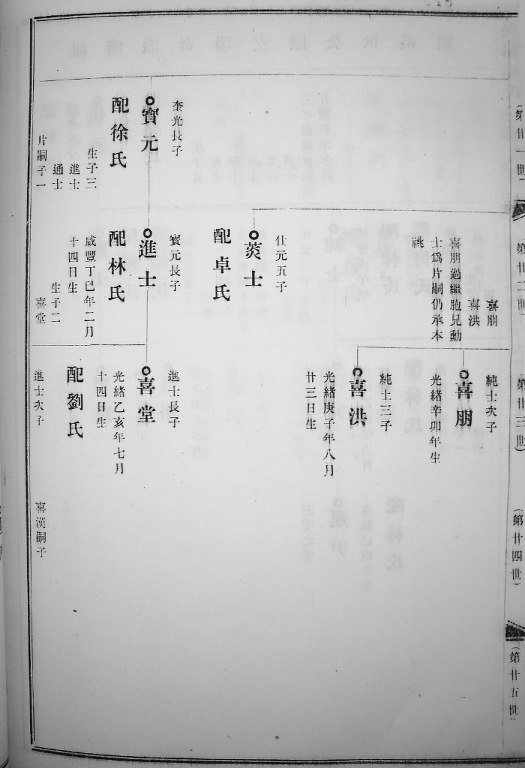 第廿一世
第廿二世
第廿三世
(第廿四世)
(第廿五世)
喜朋
喜洪
喜朋過繼胞兄勳
士爲片嗣仍承本
祧
純士次子
喜朋
光緒辛卯年生
純士三子
喜洪
光緒庚子年八月
廿三日生
仕元五子
菼士
配卓氏
奎光長子
寶元
配徐氏
生子三
進士
通士
片嗣子一
寶元長子
進士
配林氏
咸豐丁巳年二月
十四日生
生子二
喜堂
進士長子
喜堂
光緒乙亥年七月
十四日生
配劉氏
進士次子
喜漢嗣子